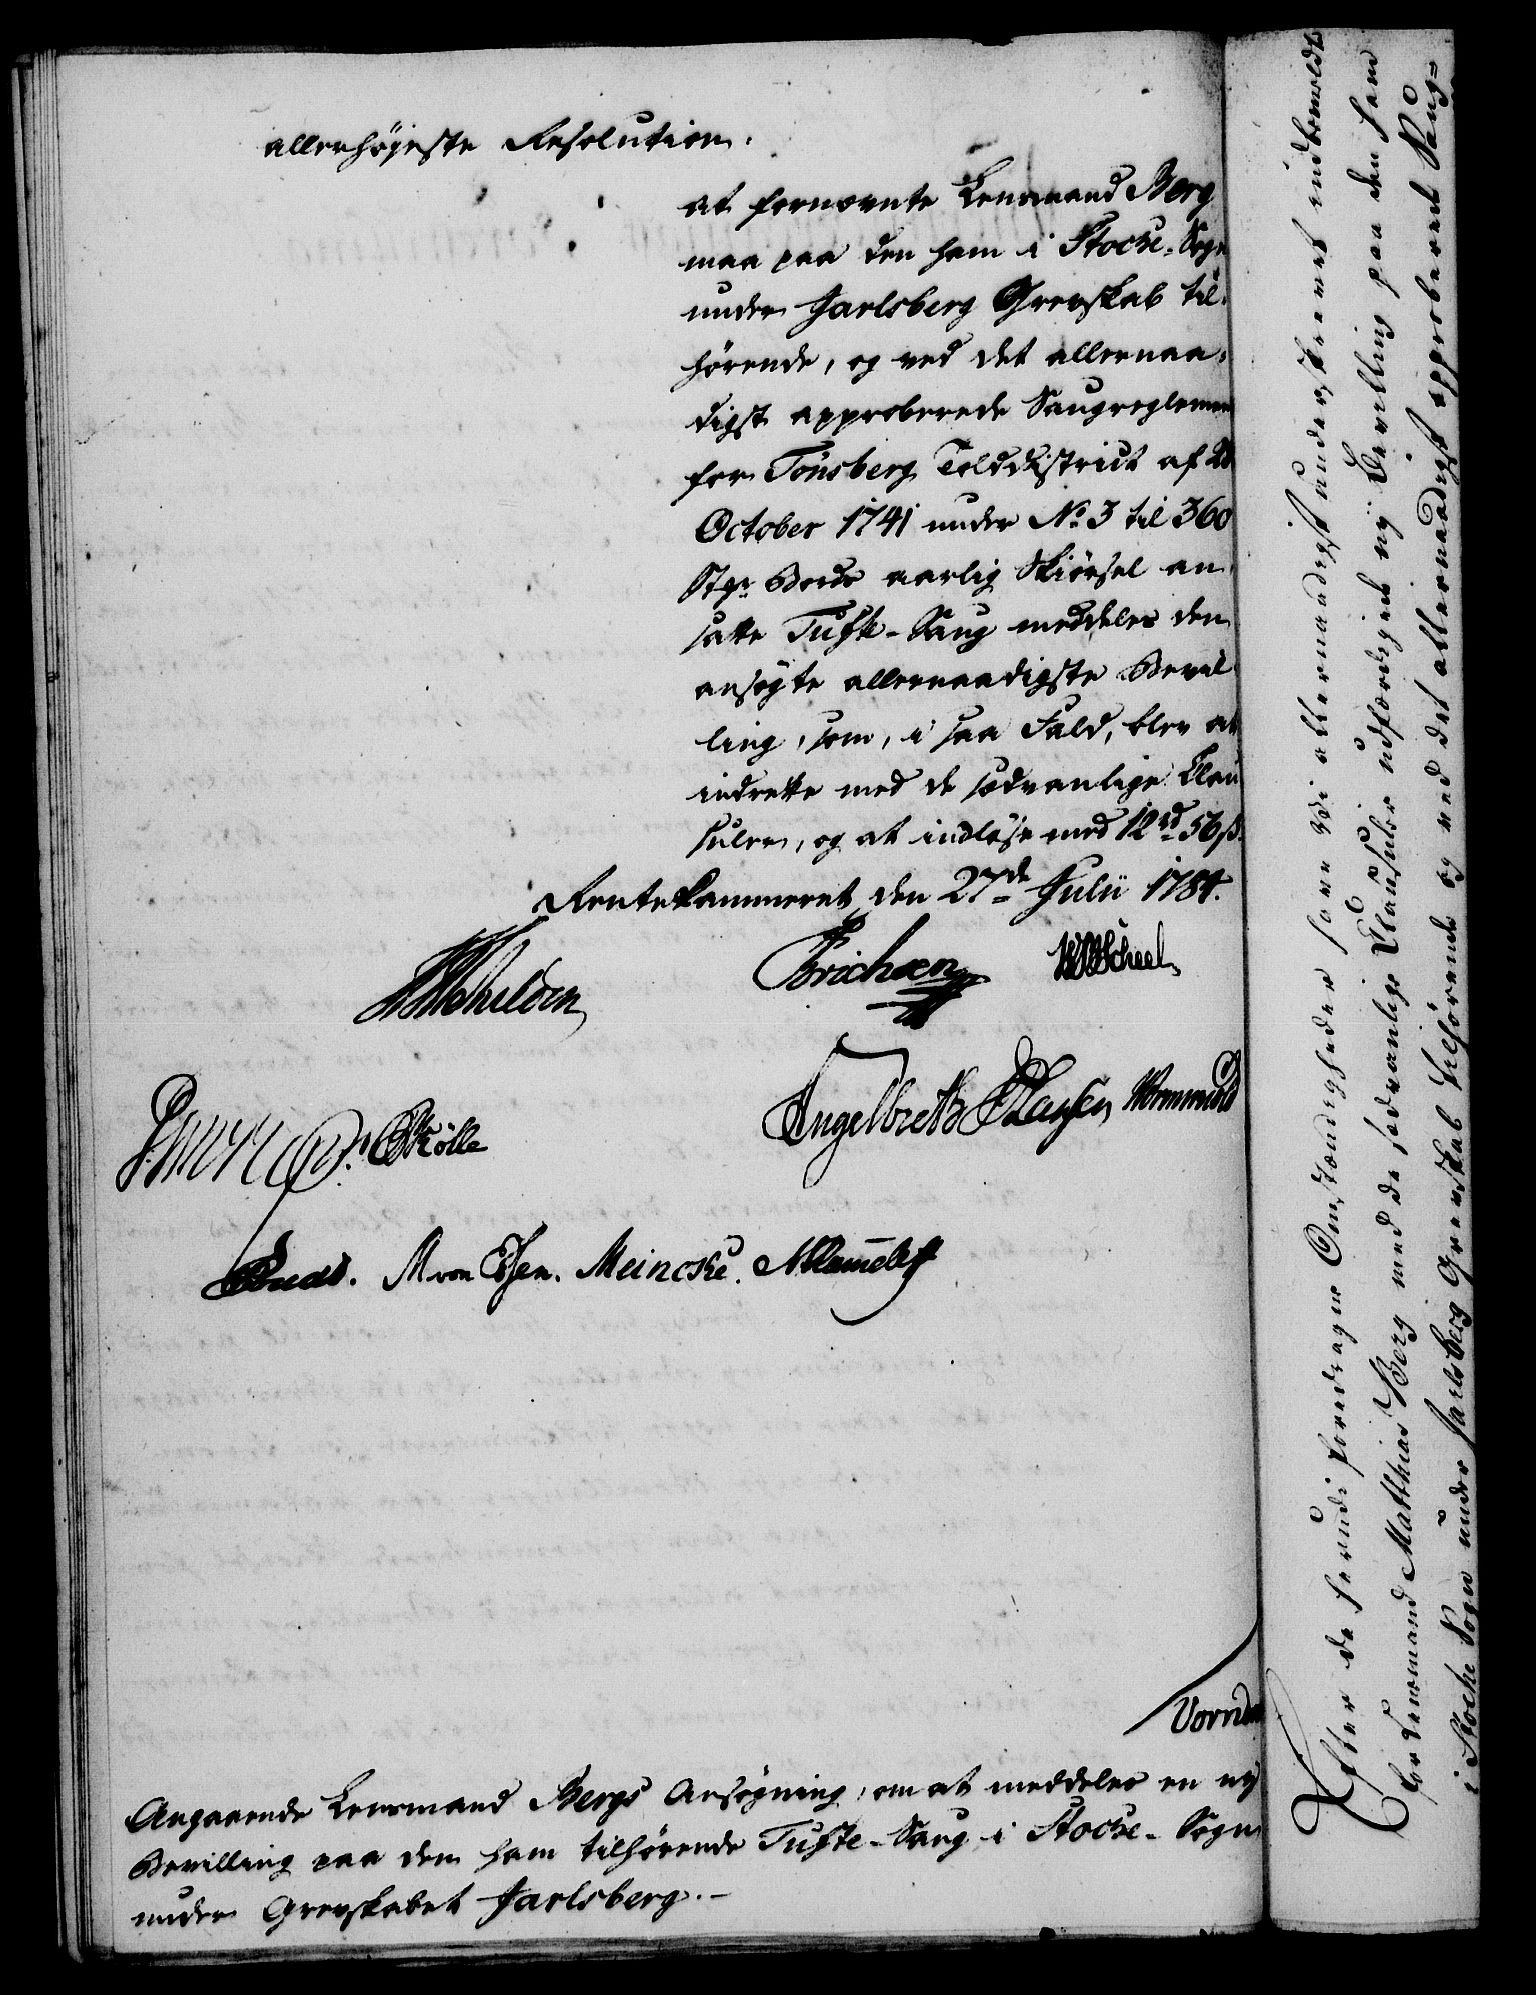 allerhøjeste Resolution:
at fornævnte Lensmand Berg
maa paa den ham i Stocke-Sogn
under Jarlsberg Grevskab til-
hørende, og ved det allernaa-
digst approberede Saugreglement
for Tönsberg Tolddistrict af
October 1741 under No. 3 til 360
Stqr Bords aarlig Skiørsel an-
satte Tufte-Saug meddeles den
ansøgte allernaadigste Bevil-
ling, som, i saa Fald, blev at
indrette med de sædvanlige Clau-
suler, og at indløse med 12 rd 56 ß.
Rentekammeret den 27de Julii 1784.
Erichsen WScheel
Engelbreth
Skölle
M von Essen. Meincke.
Vorn
Angaaende Lensmand Bergs Ansøgning, om at meddeles en ny
Bevilling paa den ham tilhørende Tufte-Saug i Stocke-Sogn
under Grevskabet Jarlsberg.-
Efter de herudi foredragne Omstændigheder have Vi allernaadigst
for Lensmand Matthias Berg med de sædvanlige Clausuler udfærdiget ny Bevilling paa den ham
i Stocke Sogn under Jarlsberg Grevskab tilhørende og ved det allernaadigst approberede Saug-